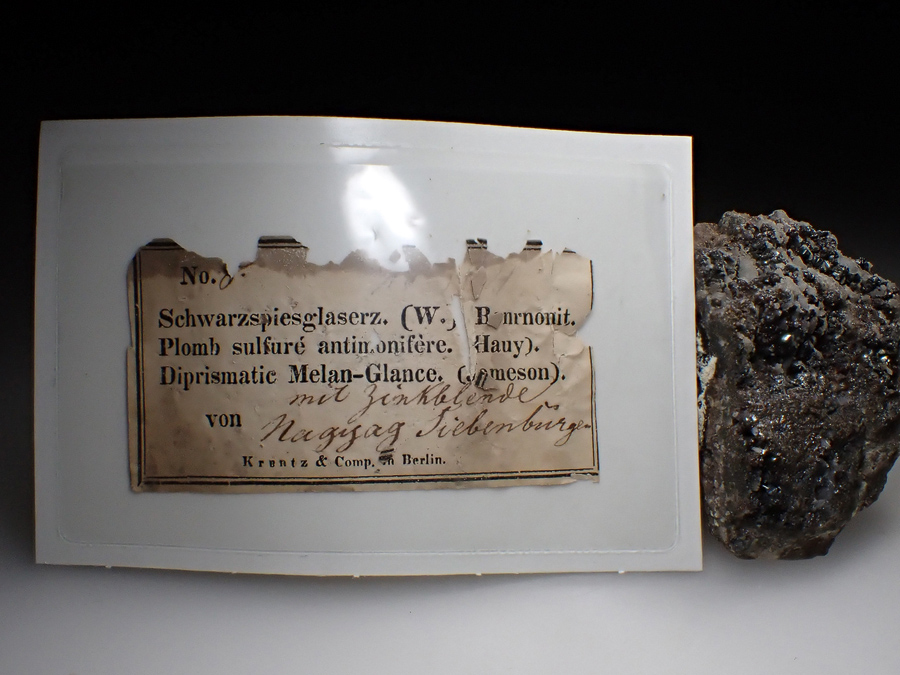 No.
Schwarzspiesglaserz. (W.) Bournonit.
Plomb sulfuré antimonifère. Hauy).
Diprismatic Melan-Glance. (Jameson).
mit Zinkblende
von Nagyag Siebenbürgen
Krantz & Comp. in Berlin.